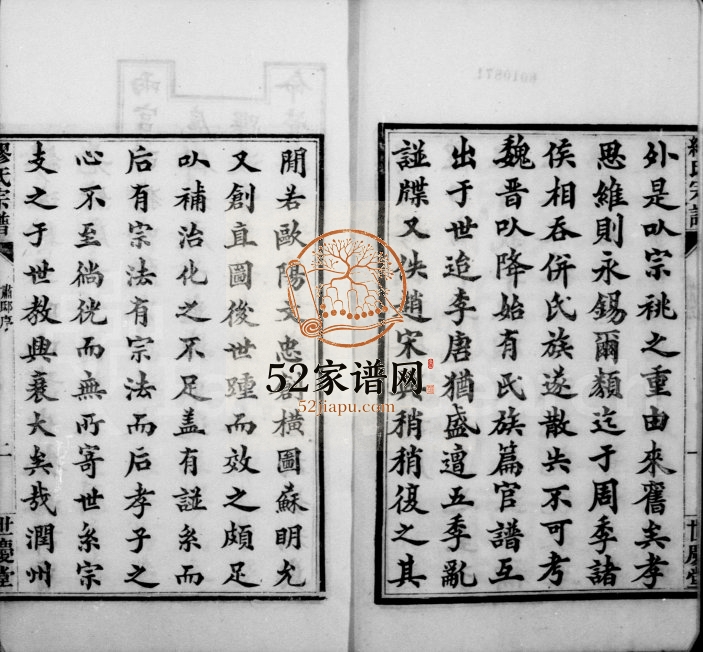 繆氏宗譜 一 世慶堂
外是㕥宗祧之重由來舊矣孝
思維則永錫爾類迄于周季諸
侯相吞併氏族遂散失不可考
魏晉㕥降始有氏族篇官譜互
出于世迨李唐猶盛遭五季亂
諩牒又佚趙宋興稍稍復之其
閒若歐陽文忠橫圖蘇明允
又創直圖後世踵而效之頗足
㕥補治化之不足盖有諩系而
后有宗法有宗法而后孝子之
心不至徜而無所寄世系宗
支之于世教興衰大矣哉潤州
繆氏宗譜 肅邸序 二 世慶堂
52家谱网
52jiapu.com
6010871